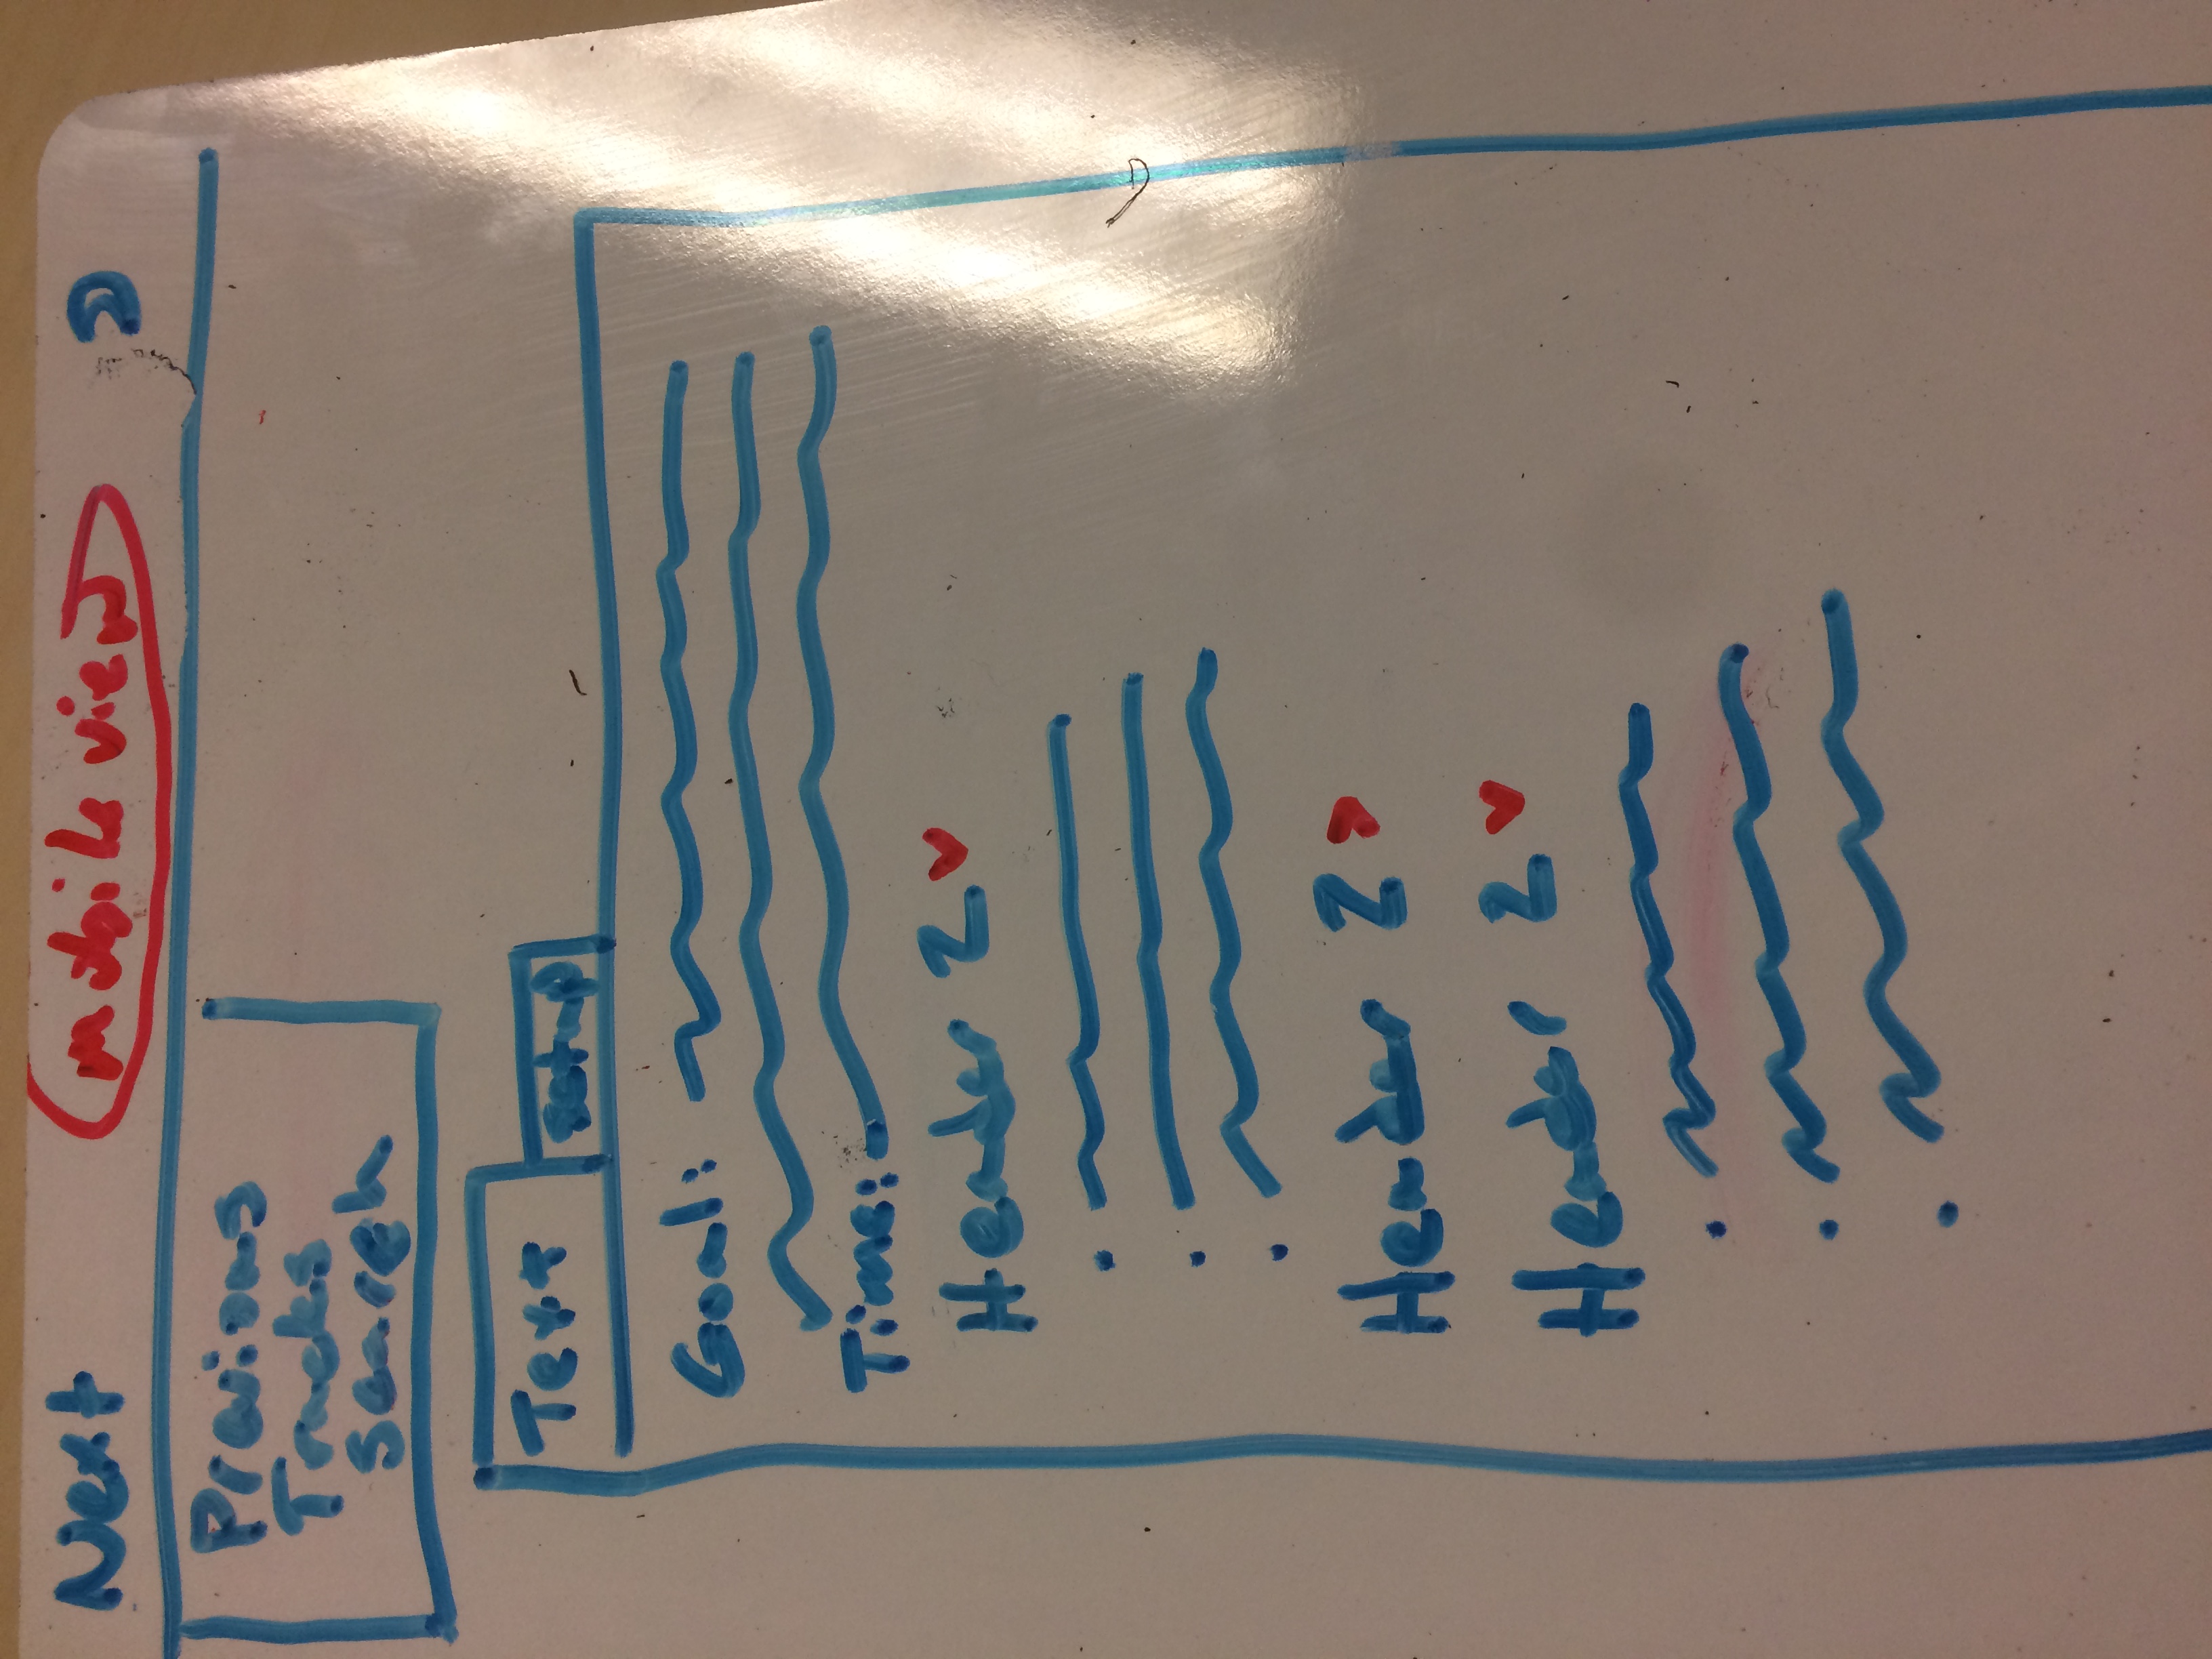 Next mobile view
Previous
Tracks
search
Text setup
Goal:
Time:
Header 2
Header 2
Header 2